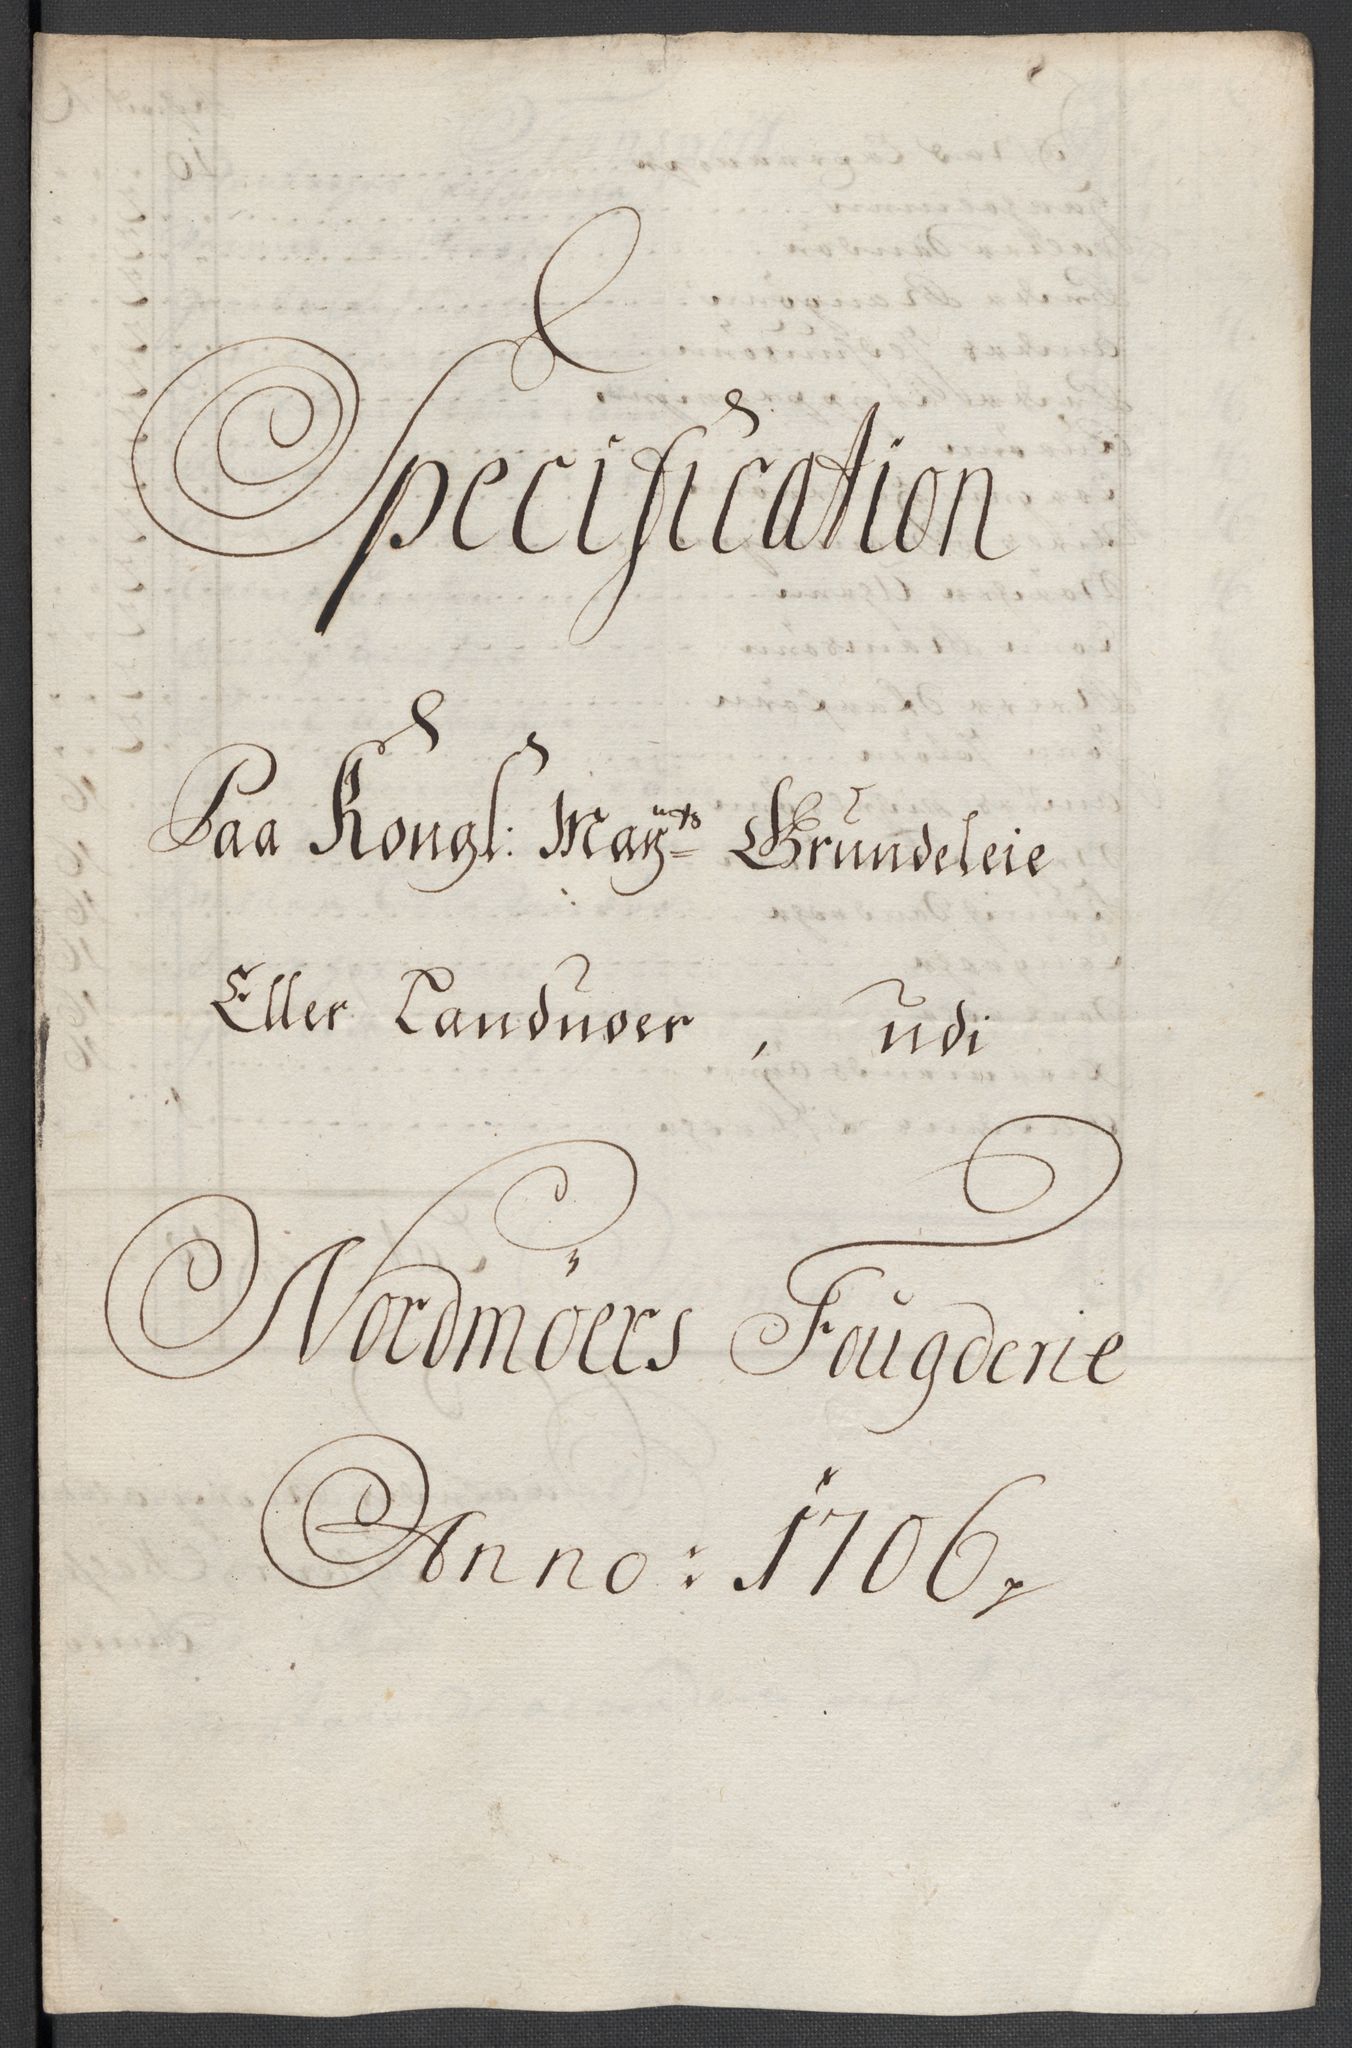 Specification
Paa Kongl: Mayts Grundeleie
Eller Landuoer, udi
Nordmöers Fougderie
Anno: 1706,